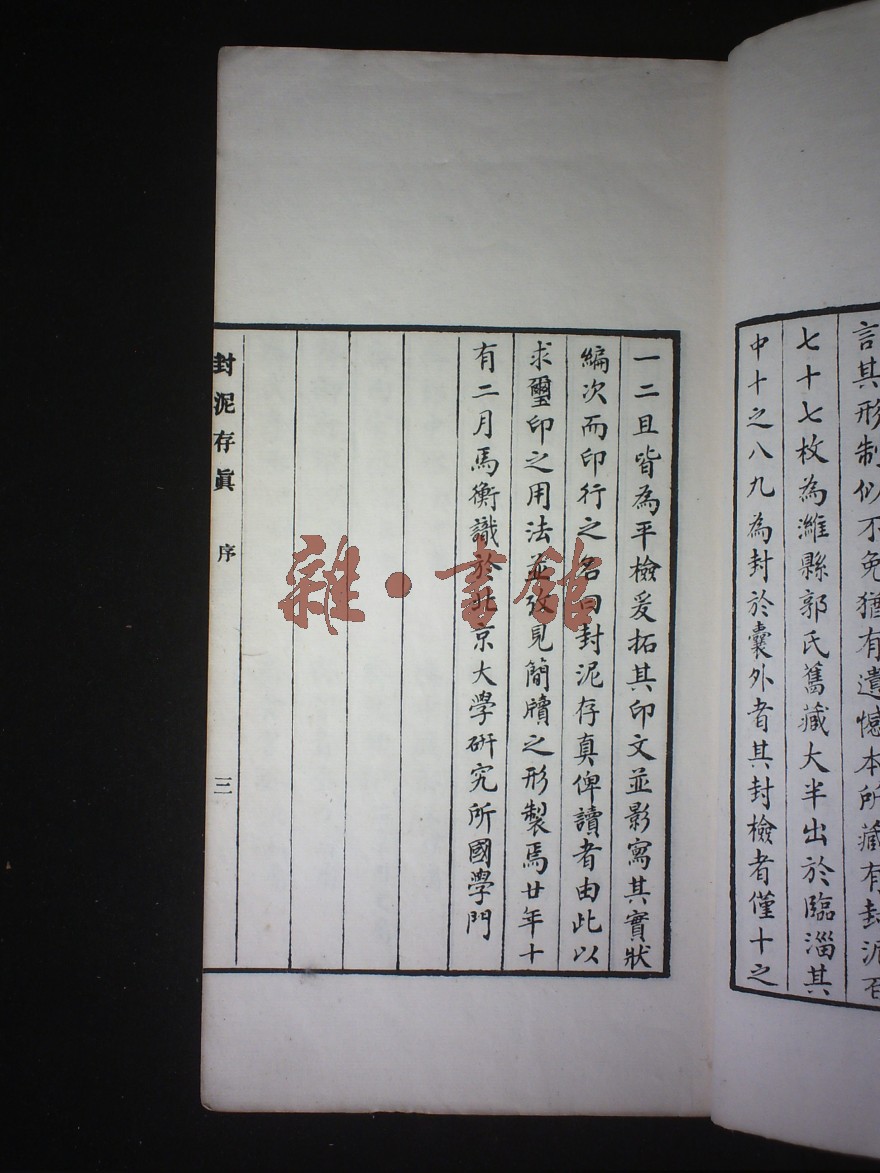 言其形制似不免猶有遺憾本所藏有封泥百
七十七枚為濰縣郭氏舊藏大半出於臨淄其
中十之八九為封於囊外者其封檢者僅十之
一二且皆為平檢爰拓其印文並影寫其實狀
編次而印行之名曰封泥存真俾讀者由此以
求璽印之用法並攷見簡牘之形製焉廿年十
有二月馬衡識於北京大學研究所國學門
封泥存眞 序 三
雜·書館